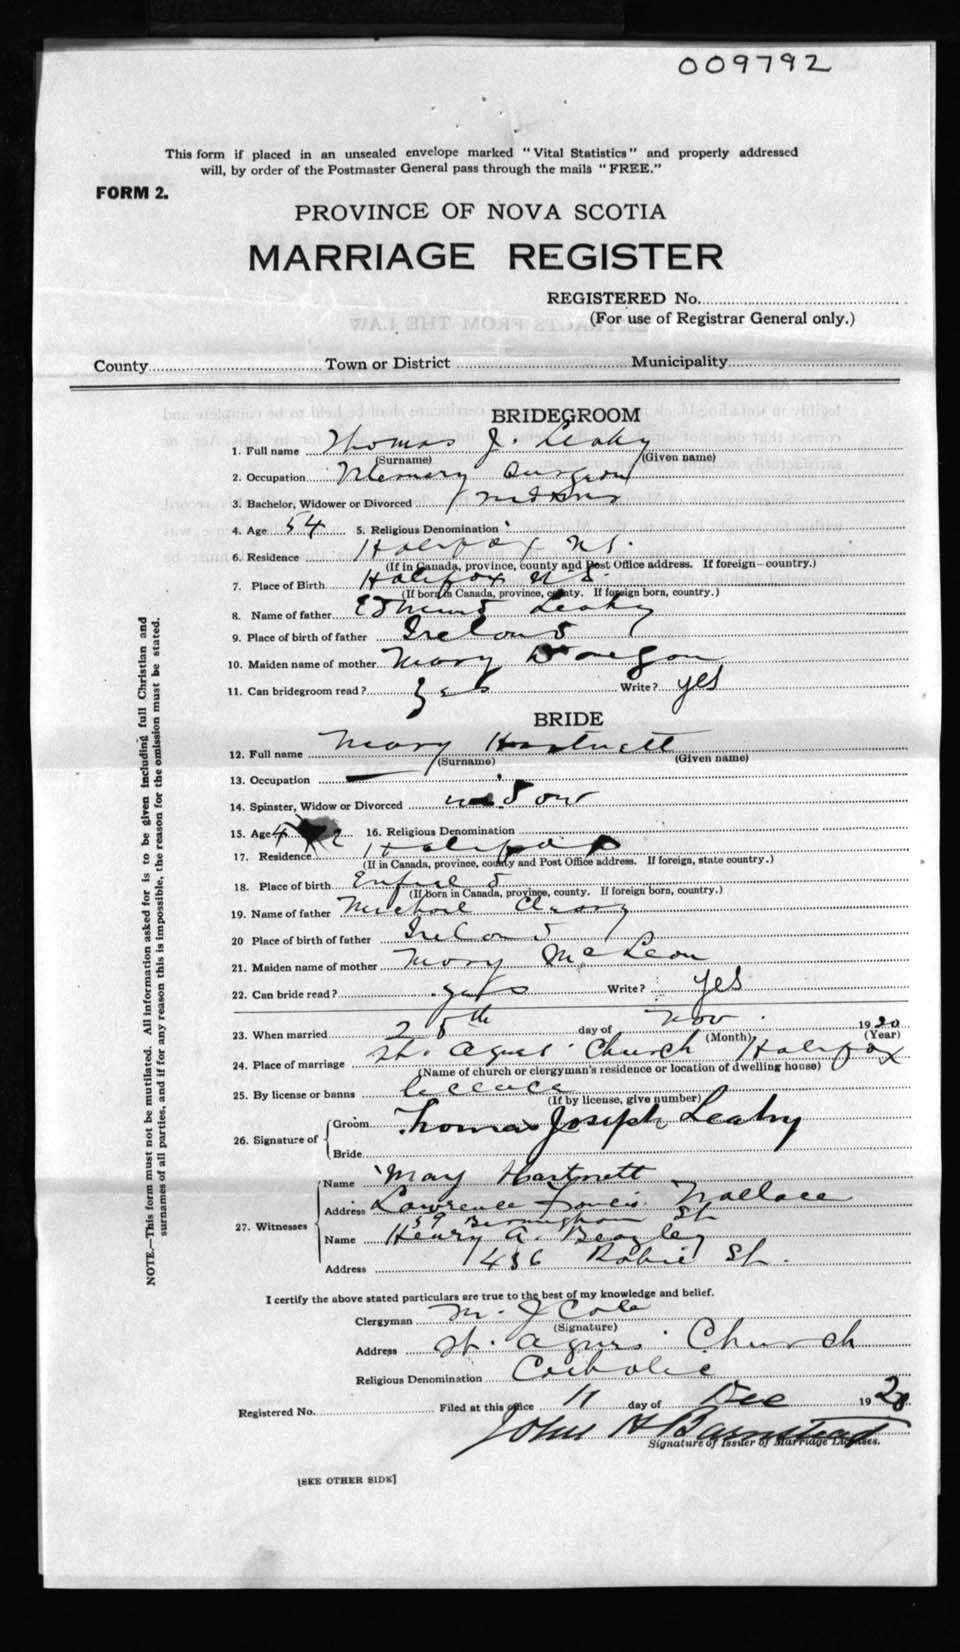 009792
This form if placed in an unsealed envelope marked "Vital Statistics" and properly addressed
will, by order of the Postmaster General pass through the mails "FREE."
FORM 2.
PROVINCE OF NOVA SCOTIA
MARRIAGE REGISTER
REGISTERED No.
(For use of Registrar General only.)
County Town or District Municipality
BRIDEGROOM
1. Full name Thomas J. Leahy
(Surname) (Given name)
2. Occupation Surgeon
3. Bachelor, Widower or Divorced
4. Age 54 5. Religious Denomination
6. Residence Halifax N.S.
(If in Canada, province, county and Post Office address. If foreign country.)
7. Place of Birth Halifax N.S.
(If born in Canada, province, county. If foreign born, country.)
8. Name of father Edmund Leahy
9. Place of birth of father Ireland
10. Maiden name of mother Mary Donegan
11. Can bridegroom read? yes Write? yes
BRIDE
12. Full name Mary Hartnett
(Surname) (Given name)
13. Occupation —
14. Spinster, Widow or Divorced widow
15. Age 4 2 16. Religious Denomination
17. Residence Halifax
(If in Canada, province, county and Post Office address. If foreign, state country.)
18. Place of birth Enfield
(If born in Canada, province, county. If foreign born, country.)
19. Name of father Michael Cleary
20 Place of birth of father Ireland
21. Maiden name of mother Mary McLean
22. Can bride read? yes Write? yes
23. When married 25th day of Nov. 1920
(Month) (Year)
24. Place of marriage St. Agnes Church Halifax
(Name of church or clergyman's residence or location of dwelling house)
25. By license or banns license
(If by license, give number)
26. Signature of Groom Thomas Joseph Leahy
Bride
27. Witnesses Name May Hartnett
Address Lawrence Francis Wallace
59 Birmingham St
Name Henry A. Beazley
Address 436 Robie St.
I certify the above stated particulars are true to the best of my knowledge and belief.
Clergyman M. J Cole
(Signature)
Address St. Agnes Church
Religious Denomination Catholic
Registered No. Filed at this office 11 day of Dec 1920
John H Barnstead
Signature of Issuer of Marriage Licenses.
[SEE OTHER SIDE]
NOTE.—This form must not be mutilated. All information asked for is to be given including full Christian and
surnames of all parties, and if for any reason this is impossible, the reason for the omission must be stated.